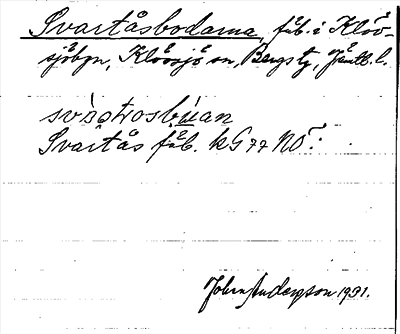 Svartåsbodarna, fäb. i Klöv-
sjöbyn, Klövsjö sn, Bergs tg, Jämtl. l.
Svartås fäb. kG77 NÖ:
John Anderson 1931.